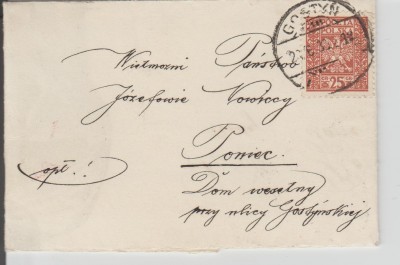 GOSTYŃ
25
Wielmożni Państwo
Józefowie Nowiccy
Poniec.
opł.!
Dom weselny
przy ulicy Gostyńskiej.